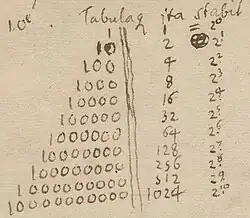 Tabula ita stabit
1 1 2⁰
10 2 2¹
100 4 2²
1000 8 2³
10000 16 2⁴
100000 32 2⁵
1000000 64 2⁶
10000000 128 2⁷
100000000 256 2⁸
1000000000 512 2⁹
10000000000 1024 2¹⁰